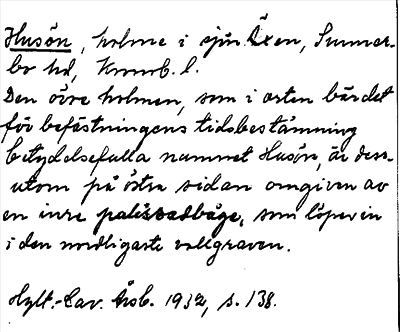 Husön, holme i sjön Åxen, Sunner-
bo hd, Kronob. l.
Den övre holmen, som i orten bär det
för befästningens tidsbestämning
betydelsefulla namnet Husön, är dess-
utom på östra sidan omgiven av
en inre palissadbåge, som löper in
i den nordligaste vallgraven.
Hylt.-Cav. Årsb. 1932, s. 138.